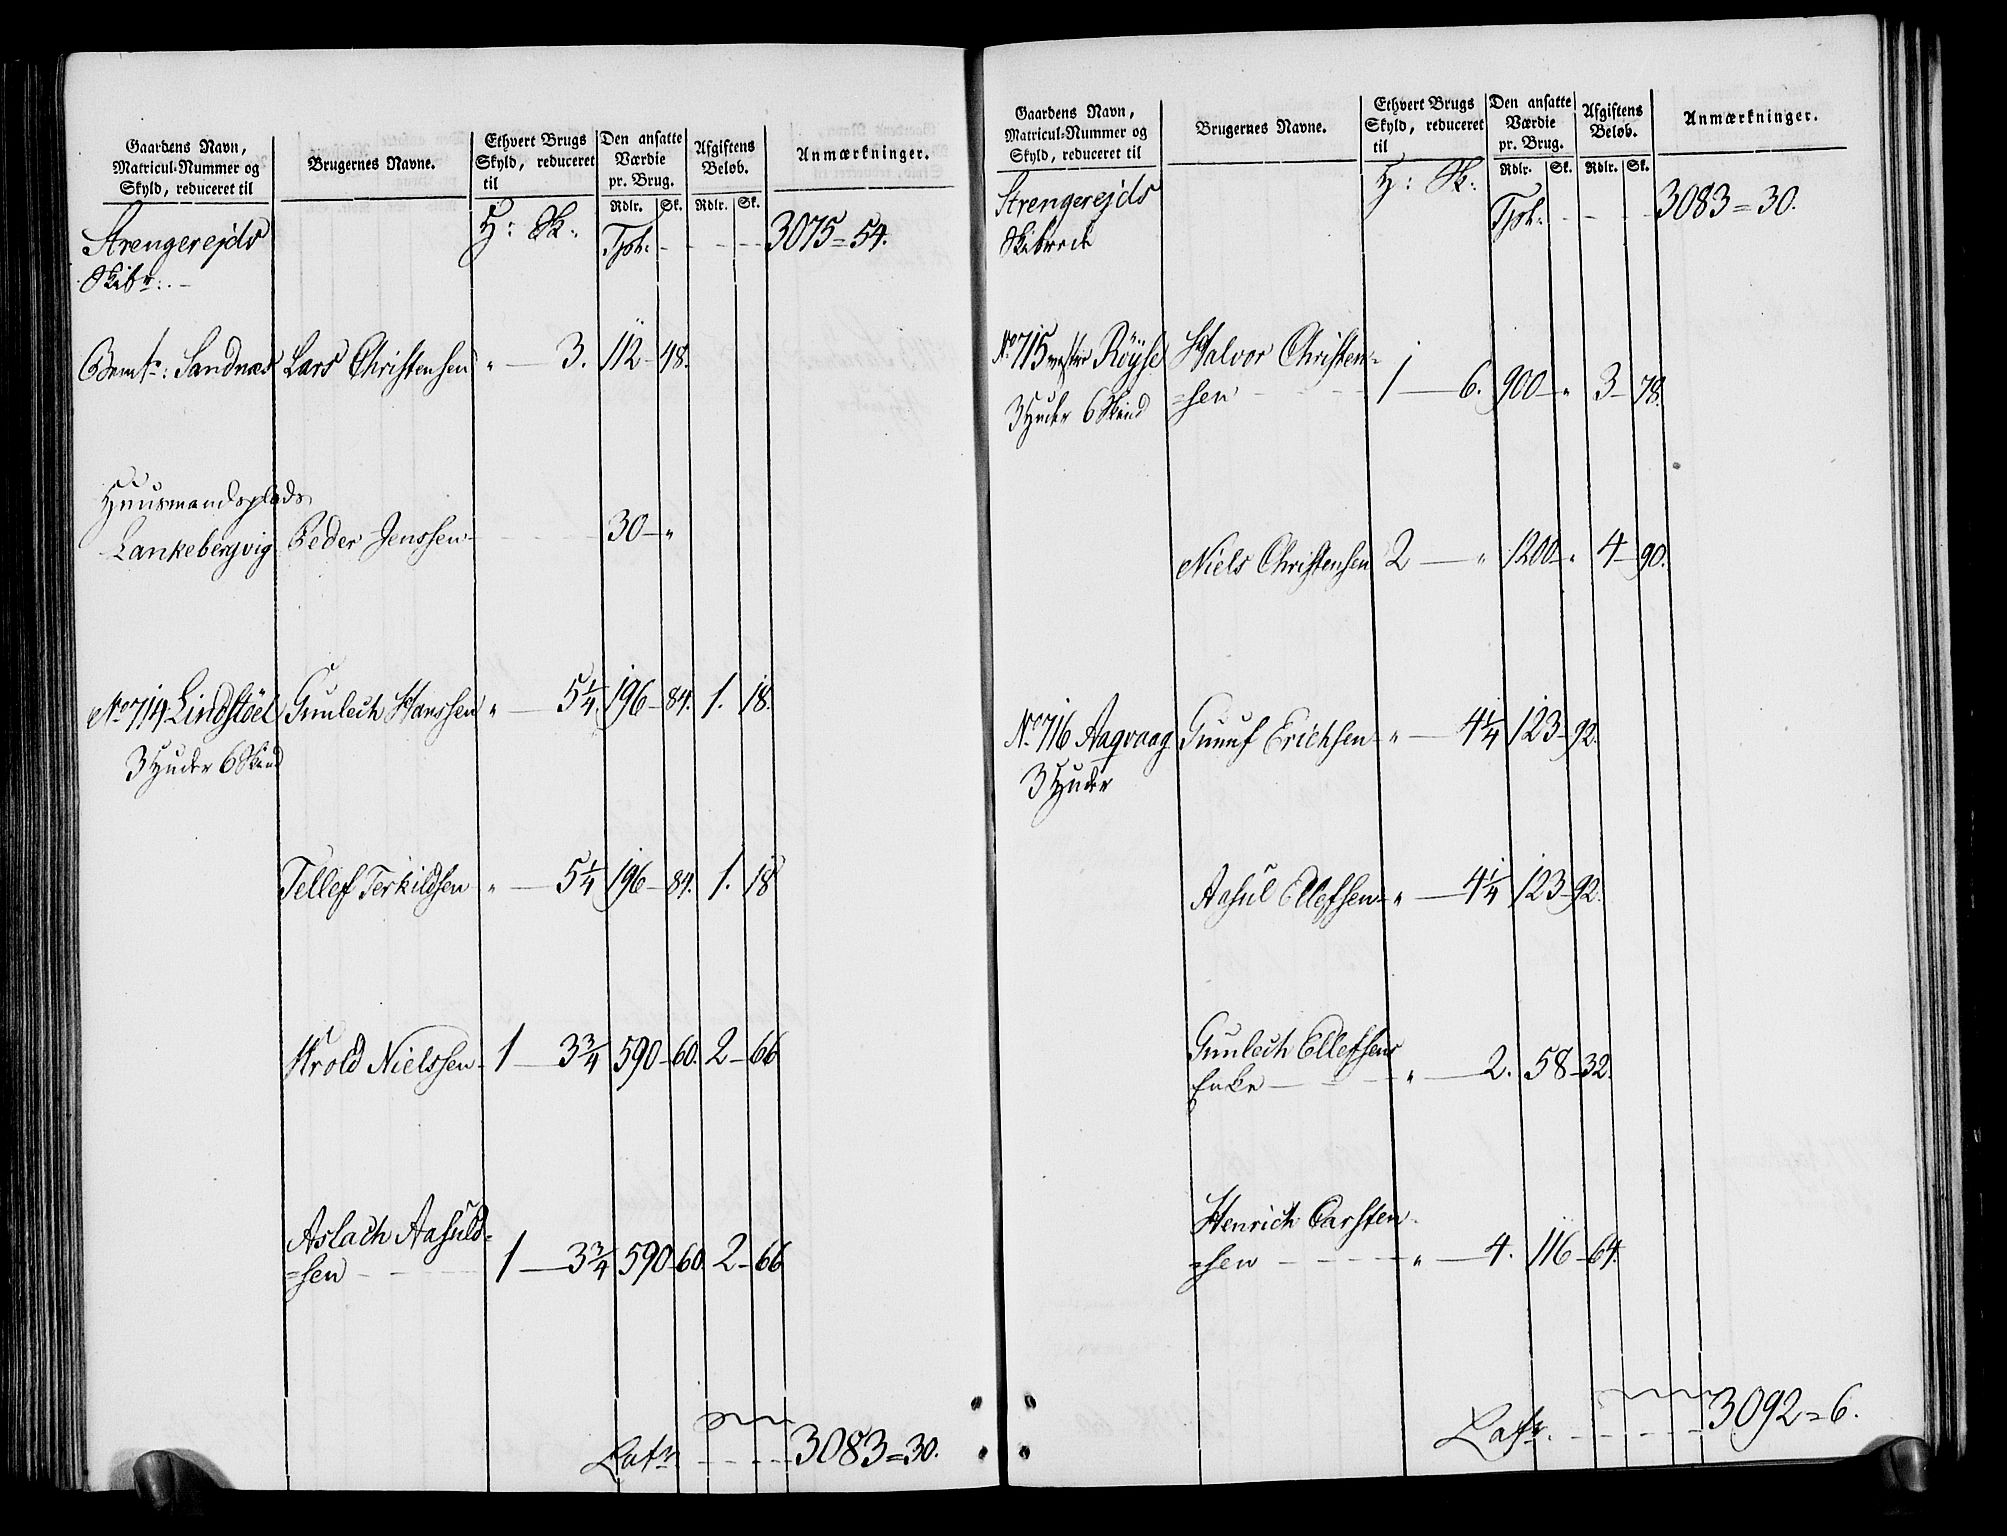 Gaardens Navn,
Matricul-Nummer og
Skyld, reduceret til
Brugernes Navne.
Ethvert Brugs
Skyld, reduceret
til
Den ansatte
Værdie
pr. Brug.
Rdlr. Sk.
Afgiftens
Beløb.
Rdlr. Sk.
Anmærkninger.
Strengerejds H: Sk: Tpt: - - - - 3075 = 54.
Skibr: -
Sandnæs Lars Christensen " — 3. 112 — 48.
Huusmandsplads
Lankebergvig Peder Jenssen - - - - 30 — "
No 714 Lindstöel Gunlech Hanssen " — 5 1/4. 196 — 84. 1. 18.
3 Huder 6 Skind
Tellef Terkildsen " — 5 1/4 196 — 84. 1. 18
Wrold Nielssen - 1 — 3 3/4 590 — 60. 2 — 66
Aslach Aasuld=
=sen - - - - 1 — 3 3/4 590 — 60. 2 — 66
Latr. - - - - 3083 = 30.
Gaardens Navn,
Matricul-Nummer og
Skyld, reduceret til
Brugernes Navne.
Ethvert Brugs
Skyld, reduceret
til
Den ansatte
Værdie
pr. Brug.
Rdlr. Sk.
Afgiftens
Beløb.
Rdlr. Sk.
Anmærkninger.
Strengerejds H: Sk: Tpt: - - - - 3083 = 30.
Skibrede
No 715 vestre Röyse Halvor Christen=
3 Huder 6 Skind =sen - - - - 1 — 6. 900 — " 3 — 78.
Niels Christensen 2 — " 1200 — " 4 — 90.
No 716 Aaqvaag Gunuf Erichsen - " — 4 1/4 123 — 92.
3 Huder
Aasul Ellefsen - " — 4 1/4 123 — 92.
Gunlech Ellefsens
Enke - - - - " — 2. 58 — 32.
Henrich Carsten=
=sen - - - - " — 4. 116 — 64.
Latr. - - - - 3092 = 6.